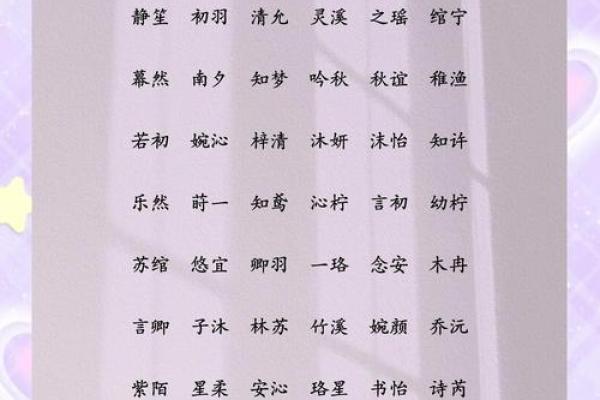 静笙 初羽 清允 灵溪 之瑶 绾宁
幕然 南夕 知梦 吟秋 秋谊 稚渔
若初 婉沁 梓清 沐妍 沫怡 知许
乐然 莳一 知鸢 沁柠 言初 幼柠
苏绾 悠宜 卿羽 一珞 念安 木冉
言卿 子沐 林苏 竹溪 婉颜 乔沅
紫陌 星柔 安沁 珞星 书怡 诗芮